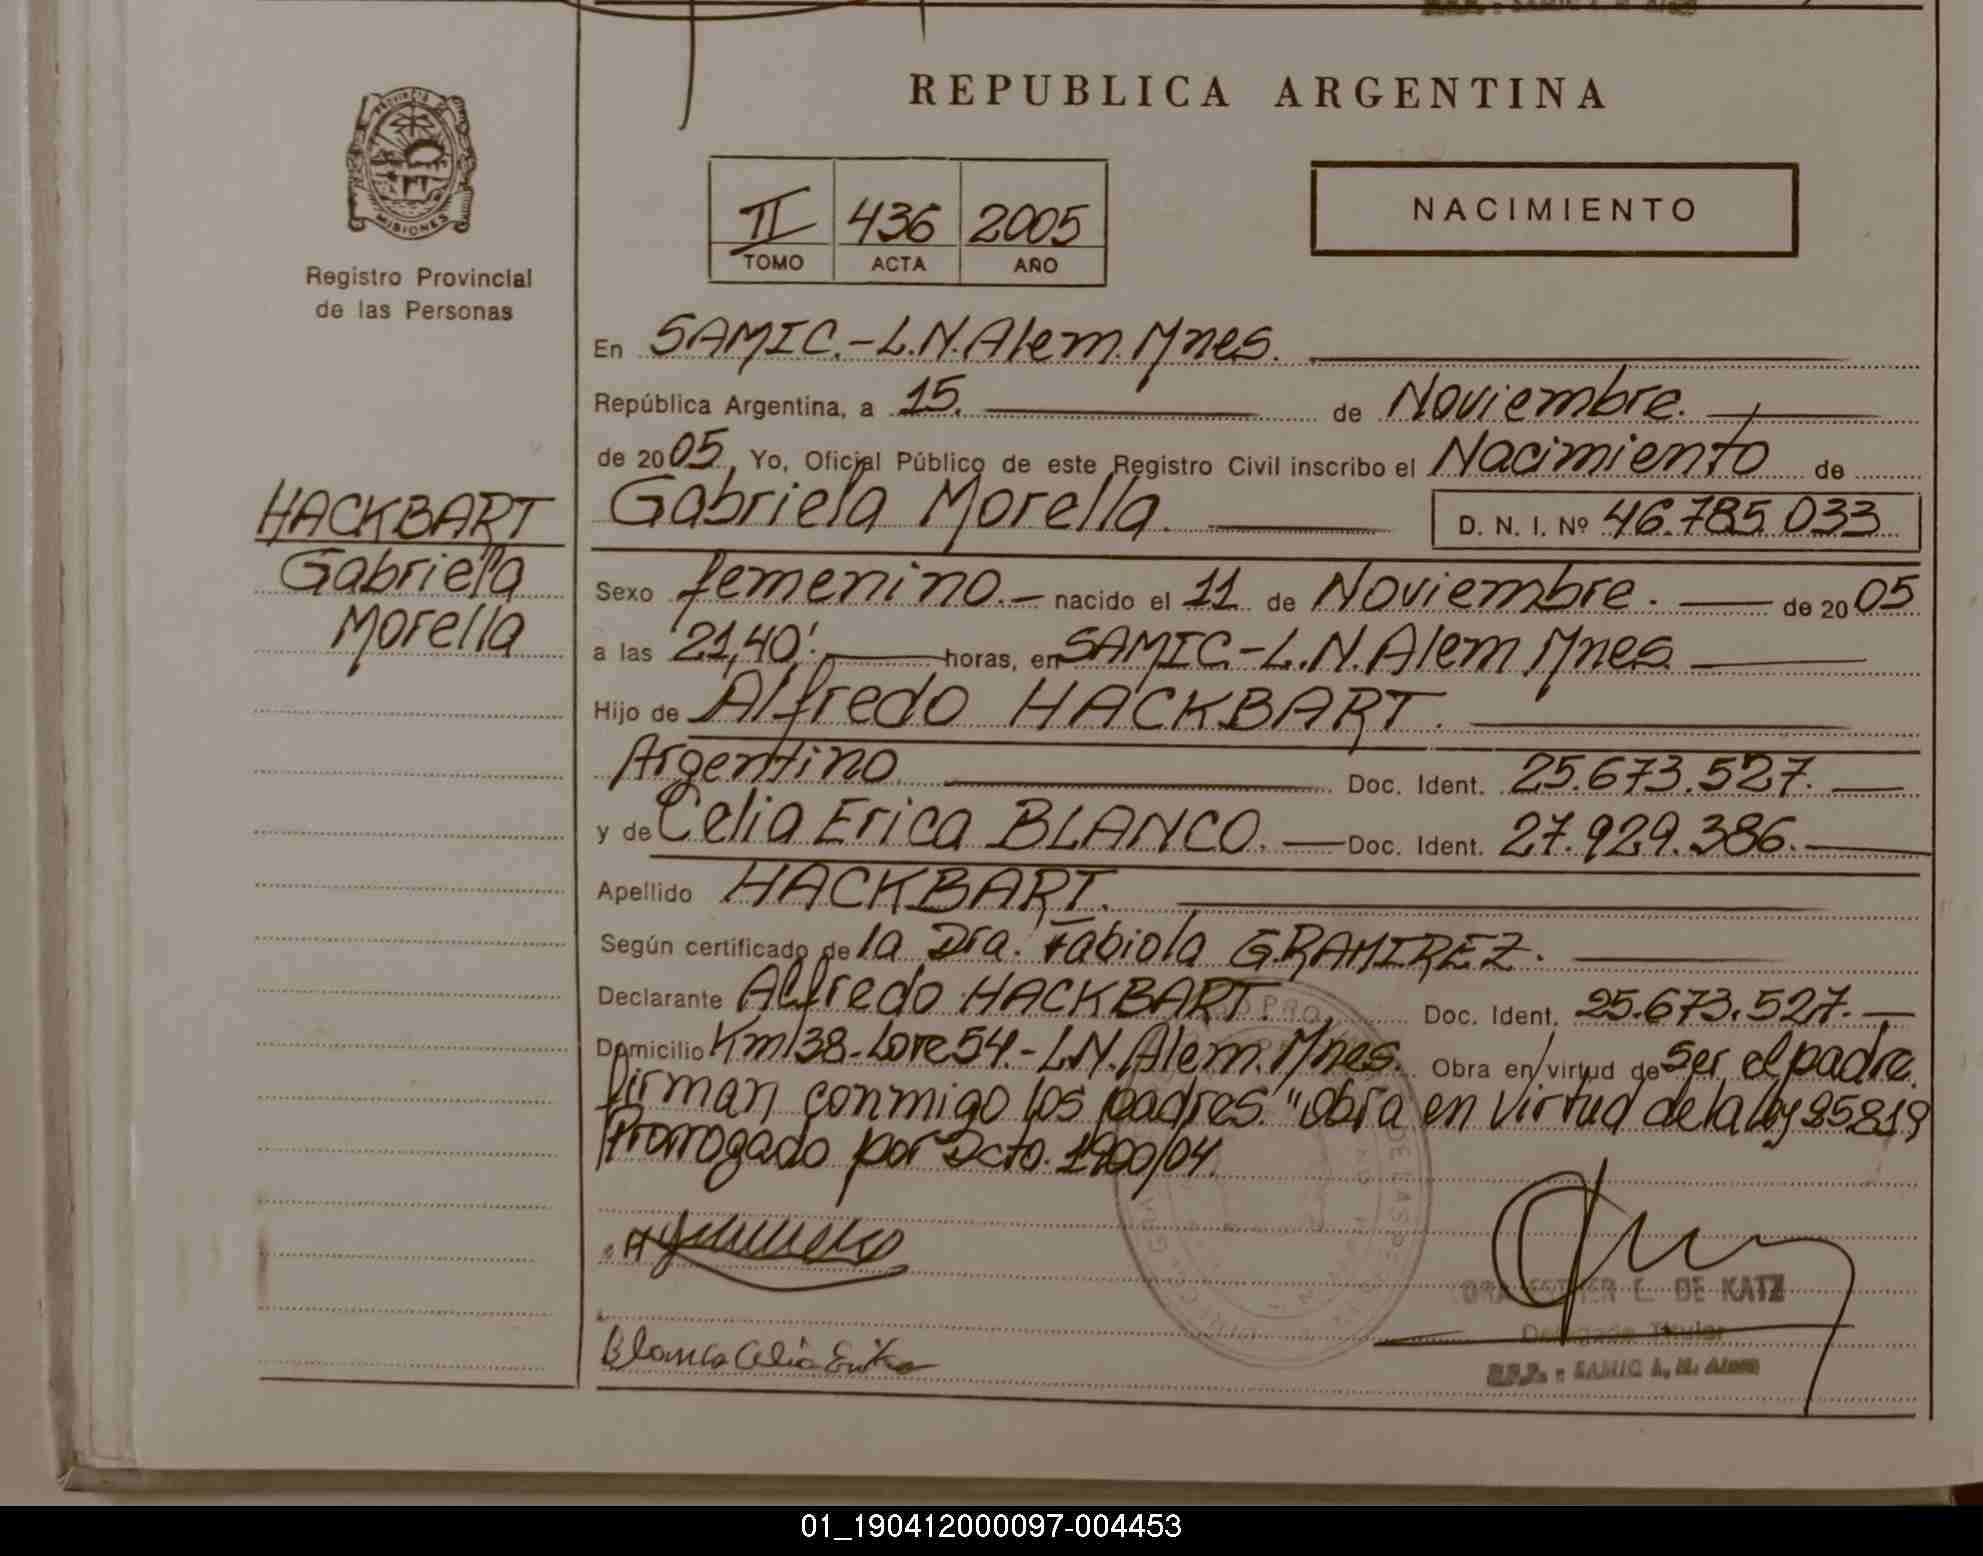 REPUBLICA ARGENTINA
PROVINCIA
MISIONES
Registro Provincial
de las Personas
II 436 2005
TOMO ACTA AÑO
NACIMIENTO
HACKBART
Gabriela
Morella
En SAMIC.-L.N.Alem.Mnes.
República Argentina, a 15. de Noviembre.
de 2005, Yo, Oficial Público de este Registro Civil inscribo el Nacimiento de
Gabriela Morella. D. N. I. Nº 46.785.033
Sexo femenino.- nacido el 11 de Noviembre. de 2005
a las 21,40'. horas, en SAMIC.-L.N.Alem Mnes
Hijo de Alfredo HACKBART.
Argentino Doc. Ident. 25.673.527.
y de Celia Erica BLANCO. Doc. Ident. 27.929.386.
Apellido HACKBART.
Según certificado de la Dra. Fabiola G.RAMIREZ.
Declarante Alfredo HACKBART. Doc. Ident. 25.673.527.
Domicilio Km138-Lote54.-L.N.Alem.Mnes. Obra en virtud de Ser el padre.
firman conmigo los padres. "Obra en virtud de la ley 25819
Prorrogado por Dcto. 1900/04.
ESTHER E. DE KATZ
Delegada Titular
R.P.P. : SAMIC L. N. Alem
Blanco Celia Erika
01_190412000097-004453